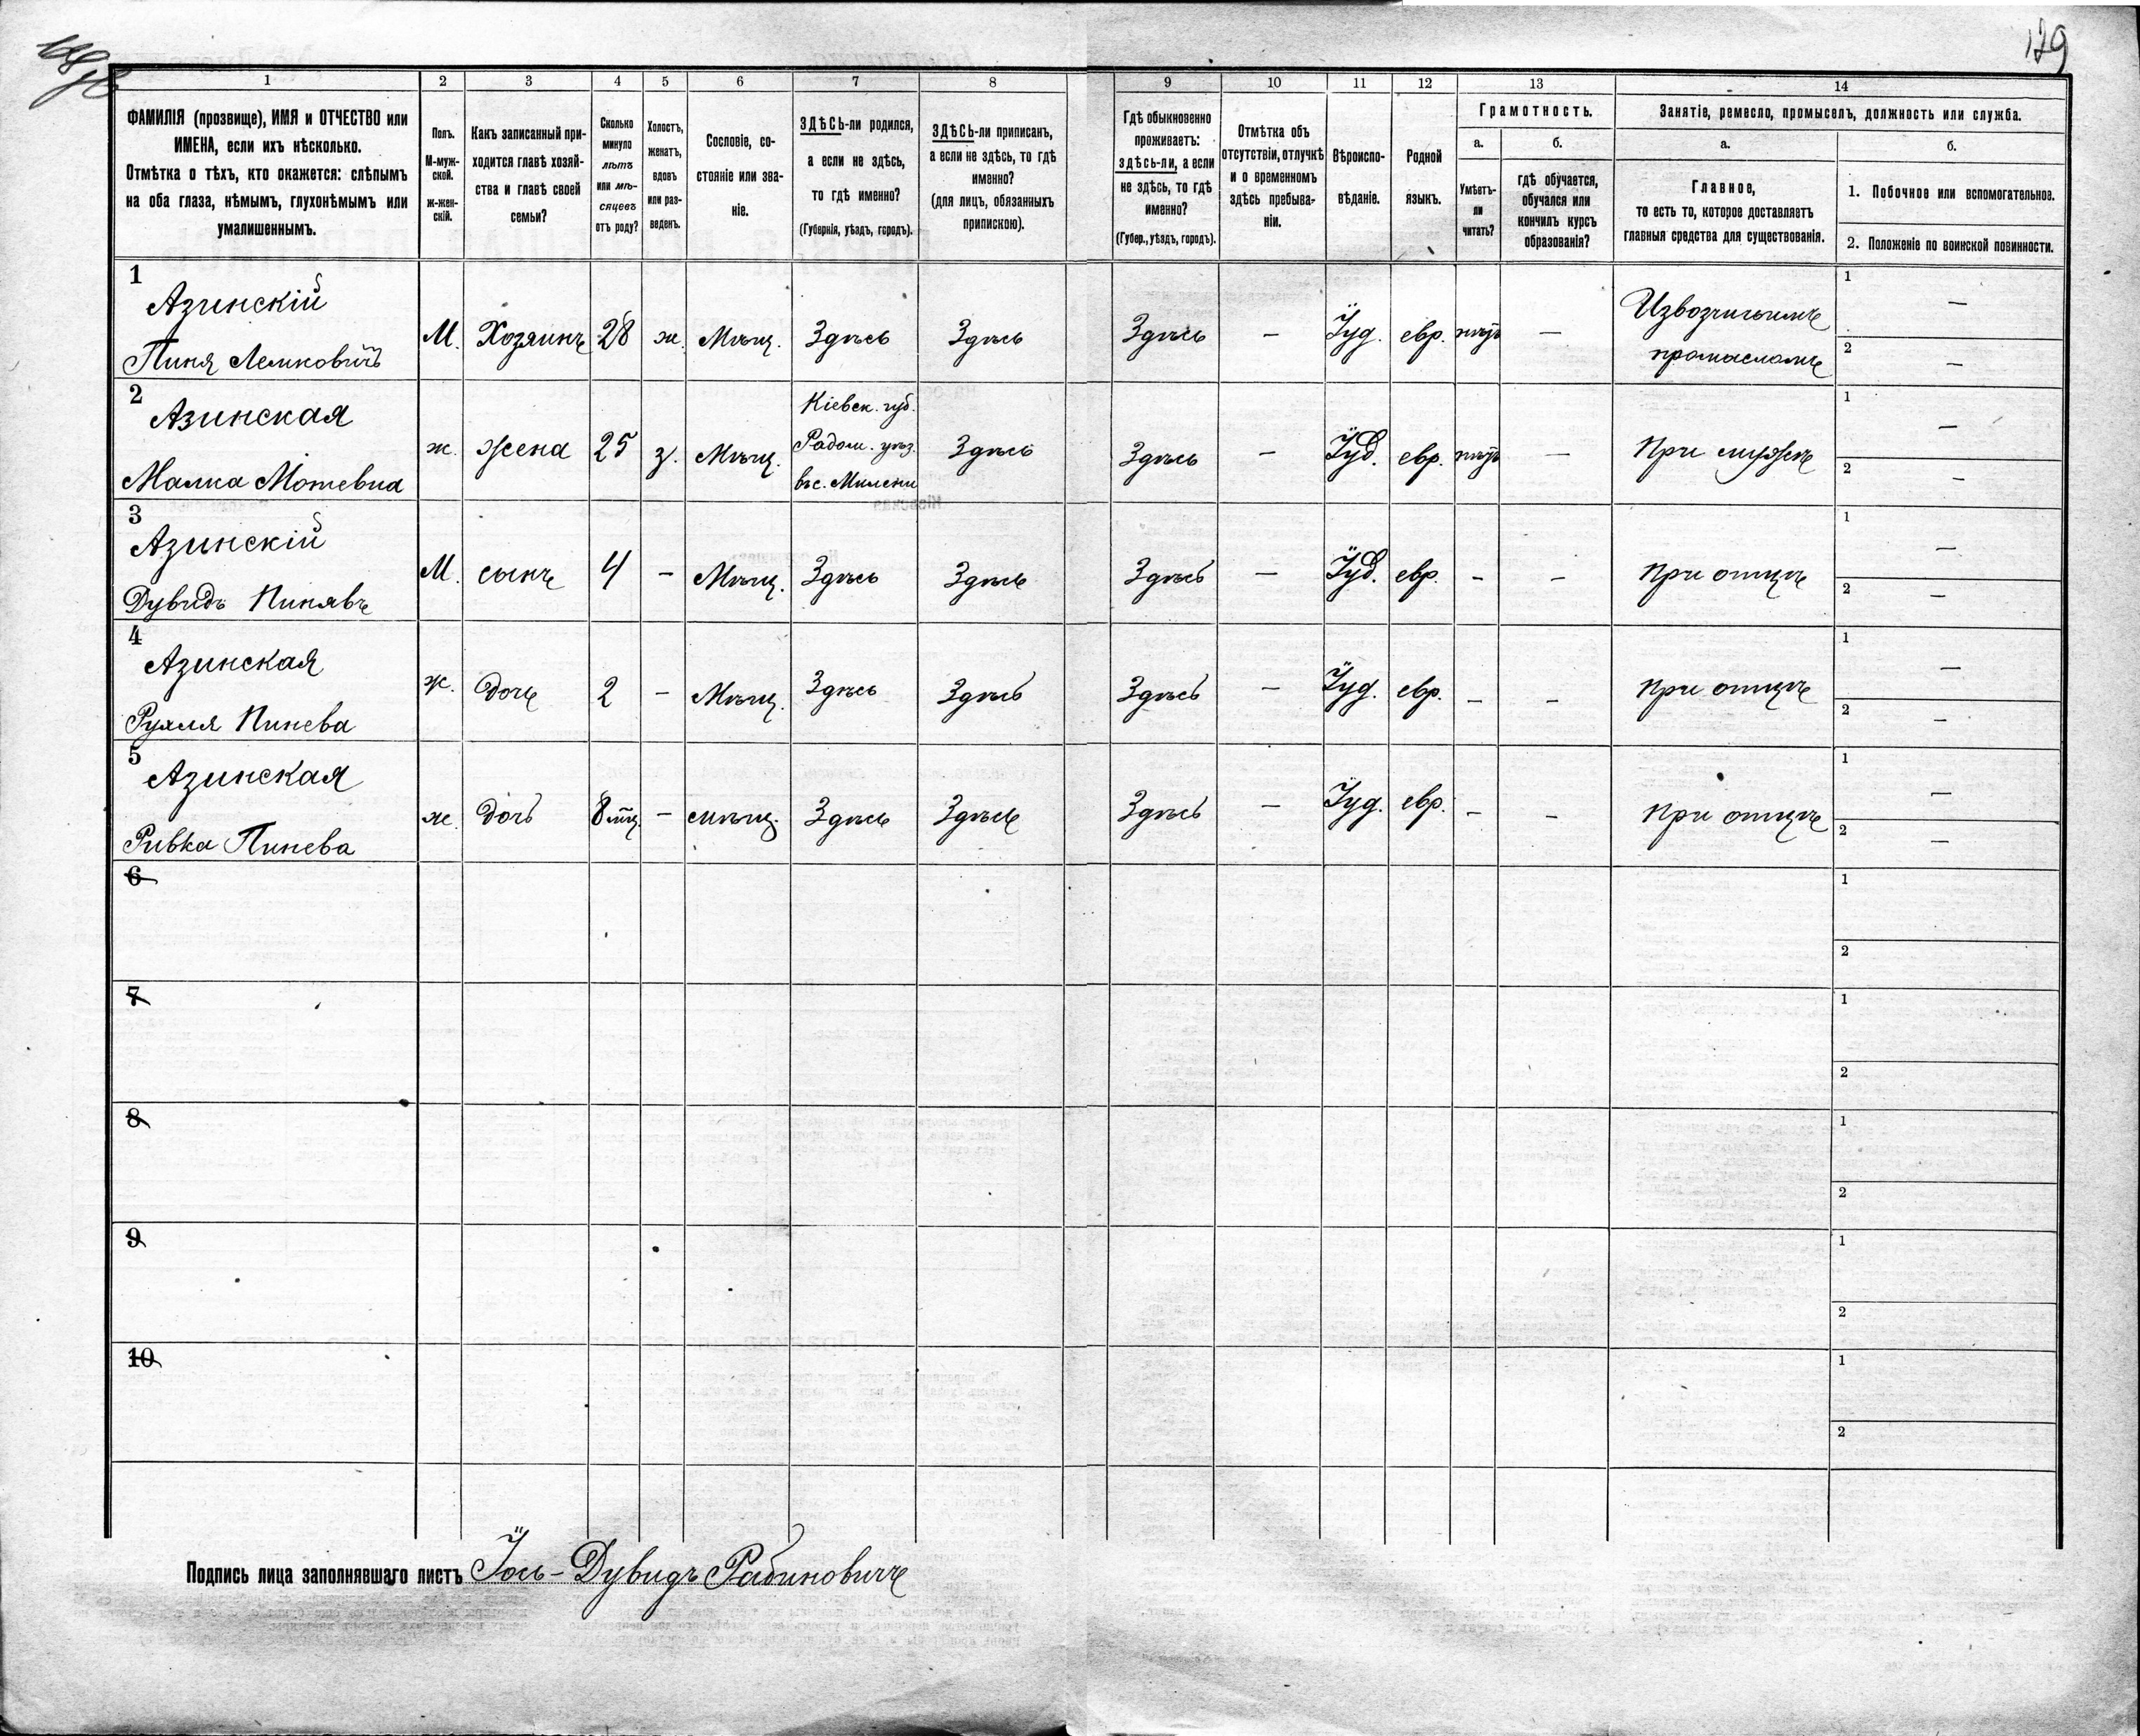 129
1 2 3 4 5 6 7 8 9 10 11 12 13 14
ФАМИЛІЯ (прозвище), ИМЯ и ОТЧЕСТВО или
ИМЕНА, если ихъ нѣсколько.
Отмѣтка о тѣхъ, кто окажется: слѣпымъ
на оба глаза, нѣмымъ, глухонѣмымъ или
умалишеннымъ.
Полъ.
М-муж-
ской.
ж-жен-
скій.
Какъ записанный при-
ходится главѣ хозяй-
ства и главѣ своей
семьи?
Сколько
минуло
лѣтъ
или мѣ-
сяцевъ
отъ роду?
Холостъ,
женатъ,
вдовъ
или раз-
веденъ.
Сословіе, со-
стояніе или зва-
ніе.
ЗДѢСЬ-ли родился,
а если не здѣсь,
то гдѣ именно?
(Губернія, уѣздъ, городъ).
ЗДѢСЬ-ли приписанъ,
а если не здѣсь, то гдѣ
именно?
(для лицъ, обязанныхъ
припискою).
Гдѣ обыкновенно
проживаетъ:
здѣсь-ли, а если
не здѣсь, то гдѣ
именно?
(Губер., уѣздъ, городъ).
Отмѣтка объ
отсутствіи, отлучкѣ
и о временномъ
здѣсь пребыва-
ніи.
Вѣроиспо-
вѣданіе.
Родной
языкъ.
Грамотность.
а.
Умѣетъ-
ли
читать?
б.
гдѣ обучается,
обучался или
кончилъ курсъ
образованія?
Занятіе, ремесло, промыселъ, должность или служба.
а.
Главное,
то есть то, которое доставляетъ
главныя средства для существованія.
б.
1. Побочное или вспомогательное.
2. Положеніе по воинской повинности.
1
Азинскій
Пиня Лемковичъ
М. Хозяинъ 28 ж. Мѣщ. Здѣсь Здѣсь Здѣсь — Іуд. евр. —
Извозчичьимъ
промысломъ
1 —
2 —
2
Азинская
Малка Мотевна
ж. жена 25 з. Мѣщ.
Кіевск. губ.
Радом. уѣз.
въ с.
Здѣсь Здѣсь — Іуд. евр. — При мужѣ
1 —
2 —
3
Азинскій
Дувидъ Пинявъ
М. сынъ 4 — Мѣщ. Здѣсь Здѣсь Здѣсь — Іуд. евр. — — при отцѣ
1 —
2 —
4
Азинская
Рухля Пинева
ж. дочь 2 — Мѣщ. Здѣсь Здѣсь Здѣсь — Іуд. евр. — — при отцѣ
1 —
2 —
5
Азинская
Ривка Пинева
ж. дочь 8 мц. — мѣщ. Здѣсь Здѣсь Здѣсь — Іуд. евр. — — при отцѣ
1 —
2 —
6
1
2
7
1
2
8
1
2
9
1
2
10
1
2
Подпись лица заполнявшаго листъ Іось-Дувидъ Рабиновичъ